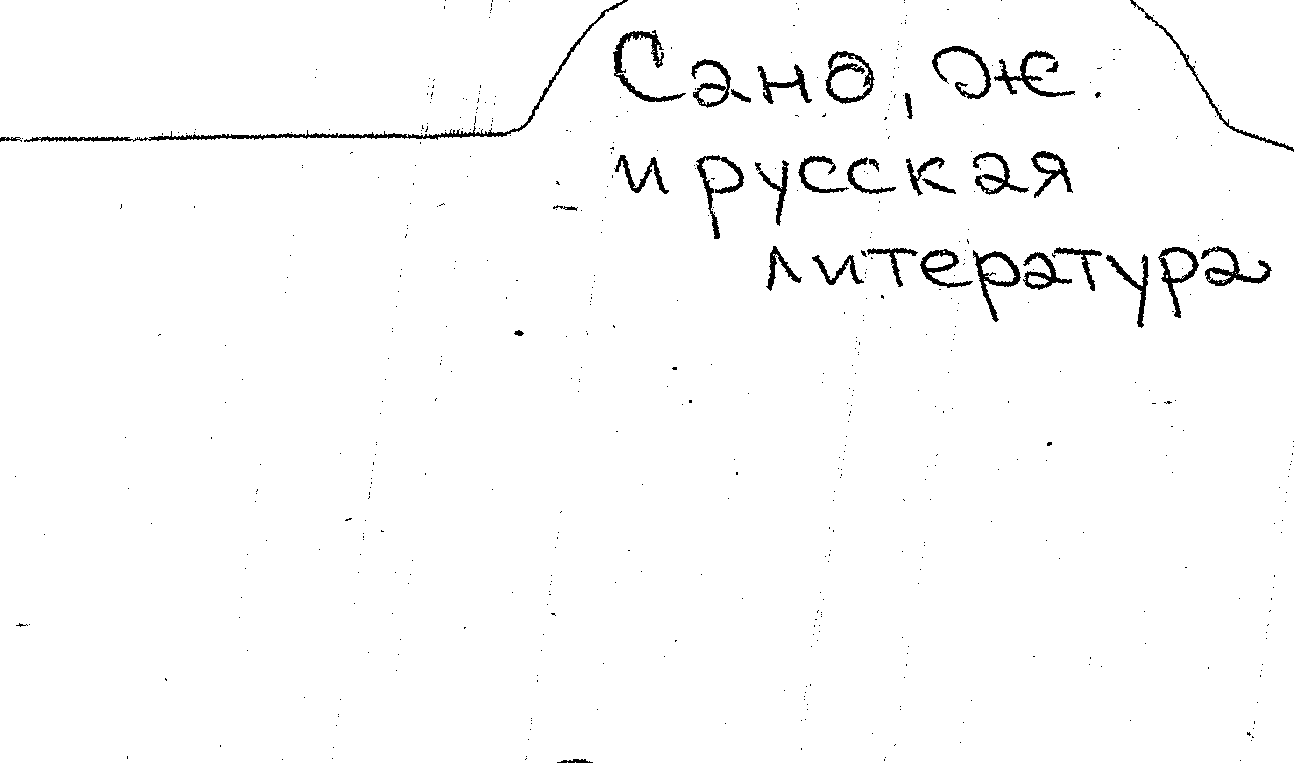 Санд, Ж.
и русская
литература